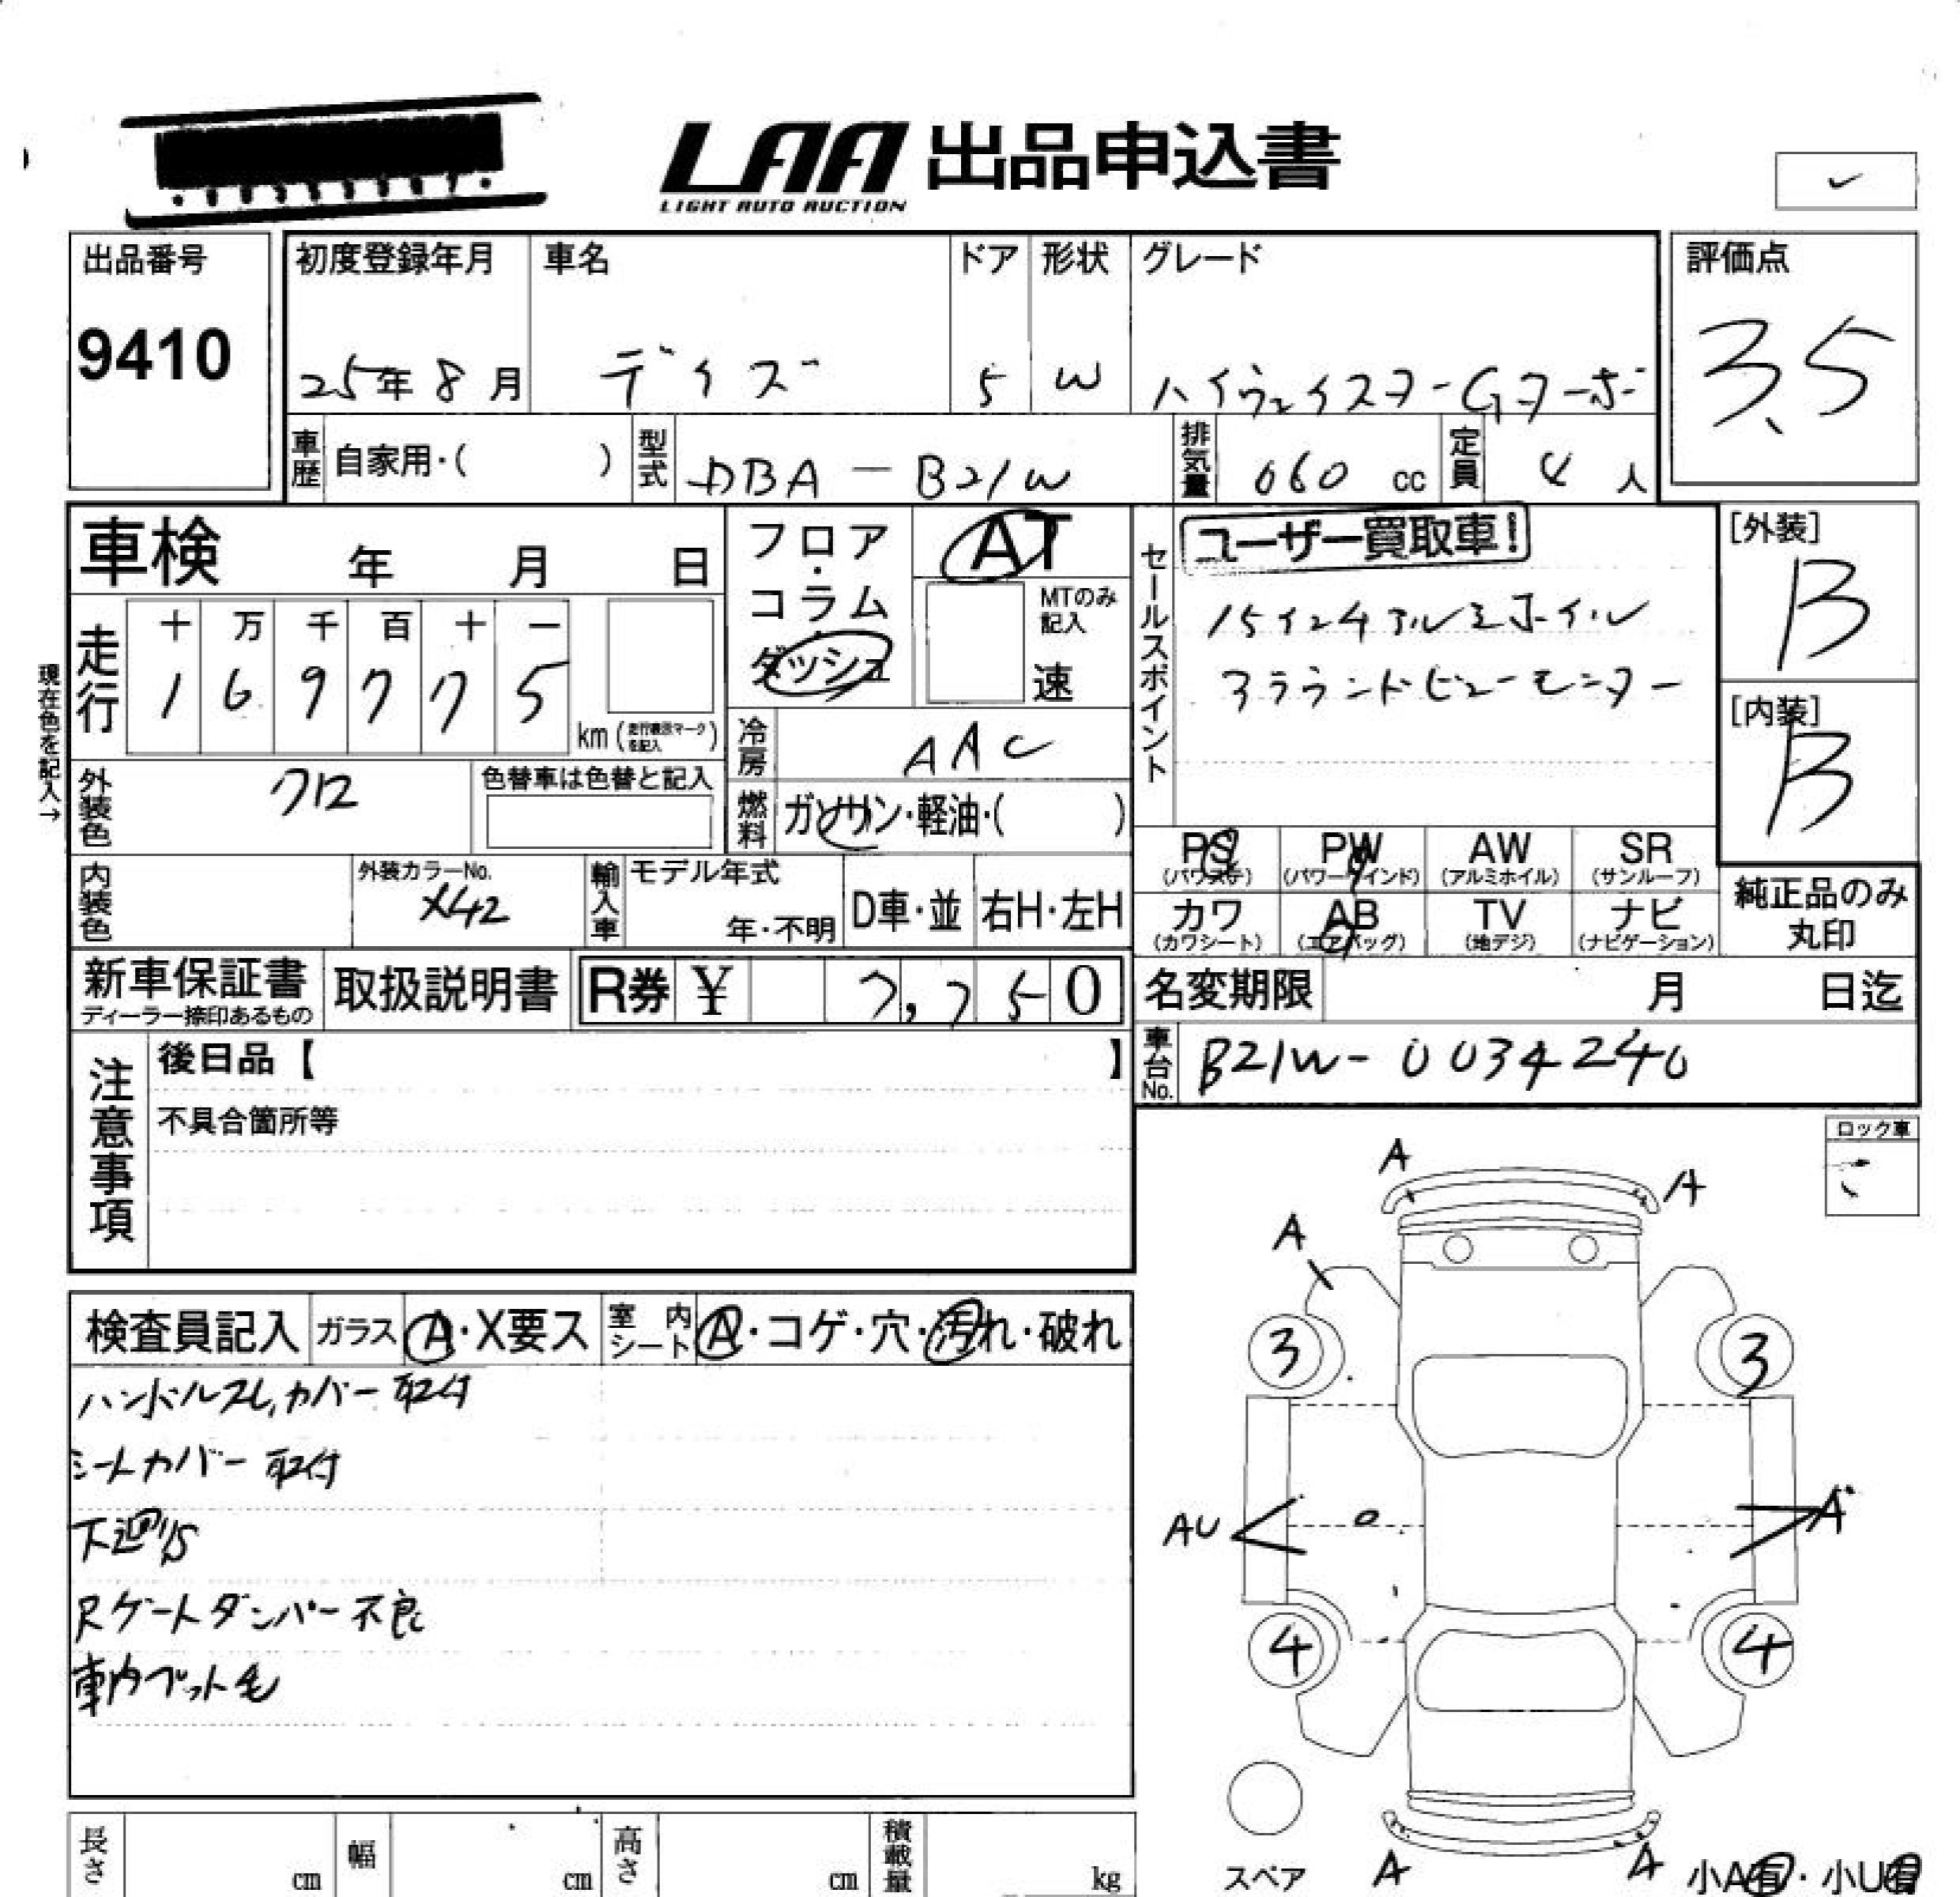 LAA 出品申込書
LIGHT AUTO AUCTION
出品番号
9410
初度登録年月
25年8月
車名
デイズ
ドア
5
形状
W
グレード
ハイウェイスターGターボ
評価点
3.5
車歴 自家用・( )
型式 DBA-B21W
排気量 060 cc
定員 4 人
車検 年 月 日
フロア・コラム
ダッシュ
AT
MTのみ記入
速
セールスポイント
ユーザー買取車!
15インチアルミホイル
アラウンドビューモニター
[外装]
B
[内装]
B
現在色を記入→
走行
十 万 千 百 十 一
1 6 9 7 7 5
km (走行表示マークを記入)
冷房 AAC
外装色 クロ
色替車は色替と記入
燃料 ガソリン・軽油・( )
PS (パワステ)
PW (パワーウインド)
AW (アルミホイル)
SR (サンルーフ)
内装色
外装カラーNo.
X42
輸入車
モデル年式
年・不明
D車・並
右H・左H
カワ (カワシート)
AB (エアバッグ)
TV (地デジ)
ナビ (ナビゲーション)
純正品のみ
丸印
新車保証書
ディーラー捺印あるもの
取扱説明書
R券 ¥ 7,750
名変期限 月 日迄
車台No. B21W-0034240
注意事項
後日品【 】
不具合箇所等
ロック車
検査員記入
ガラス A・X要ス
室内シート A・コゲ・穴・汚れ・破れ
ハンドルスレ,カバー取付
シートカバー取付
下廻りS
Rゲートダンパー不良
車内ペット毛
A
A
A
3
3
AU
A
4
4
スペア
A
A
小A有・小U有
長さ cm
幅 cm
高さ cm
積載量 kg